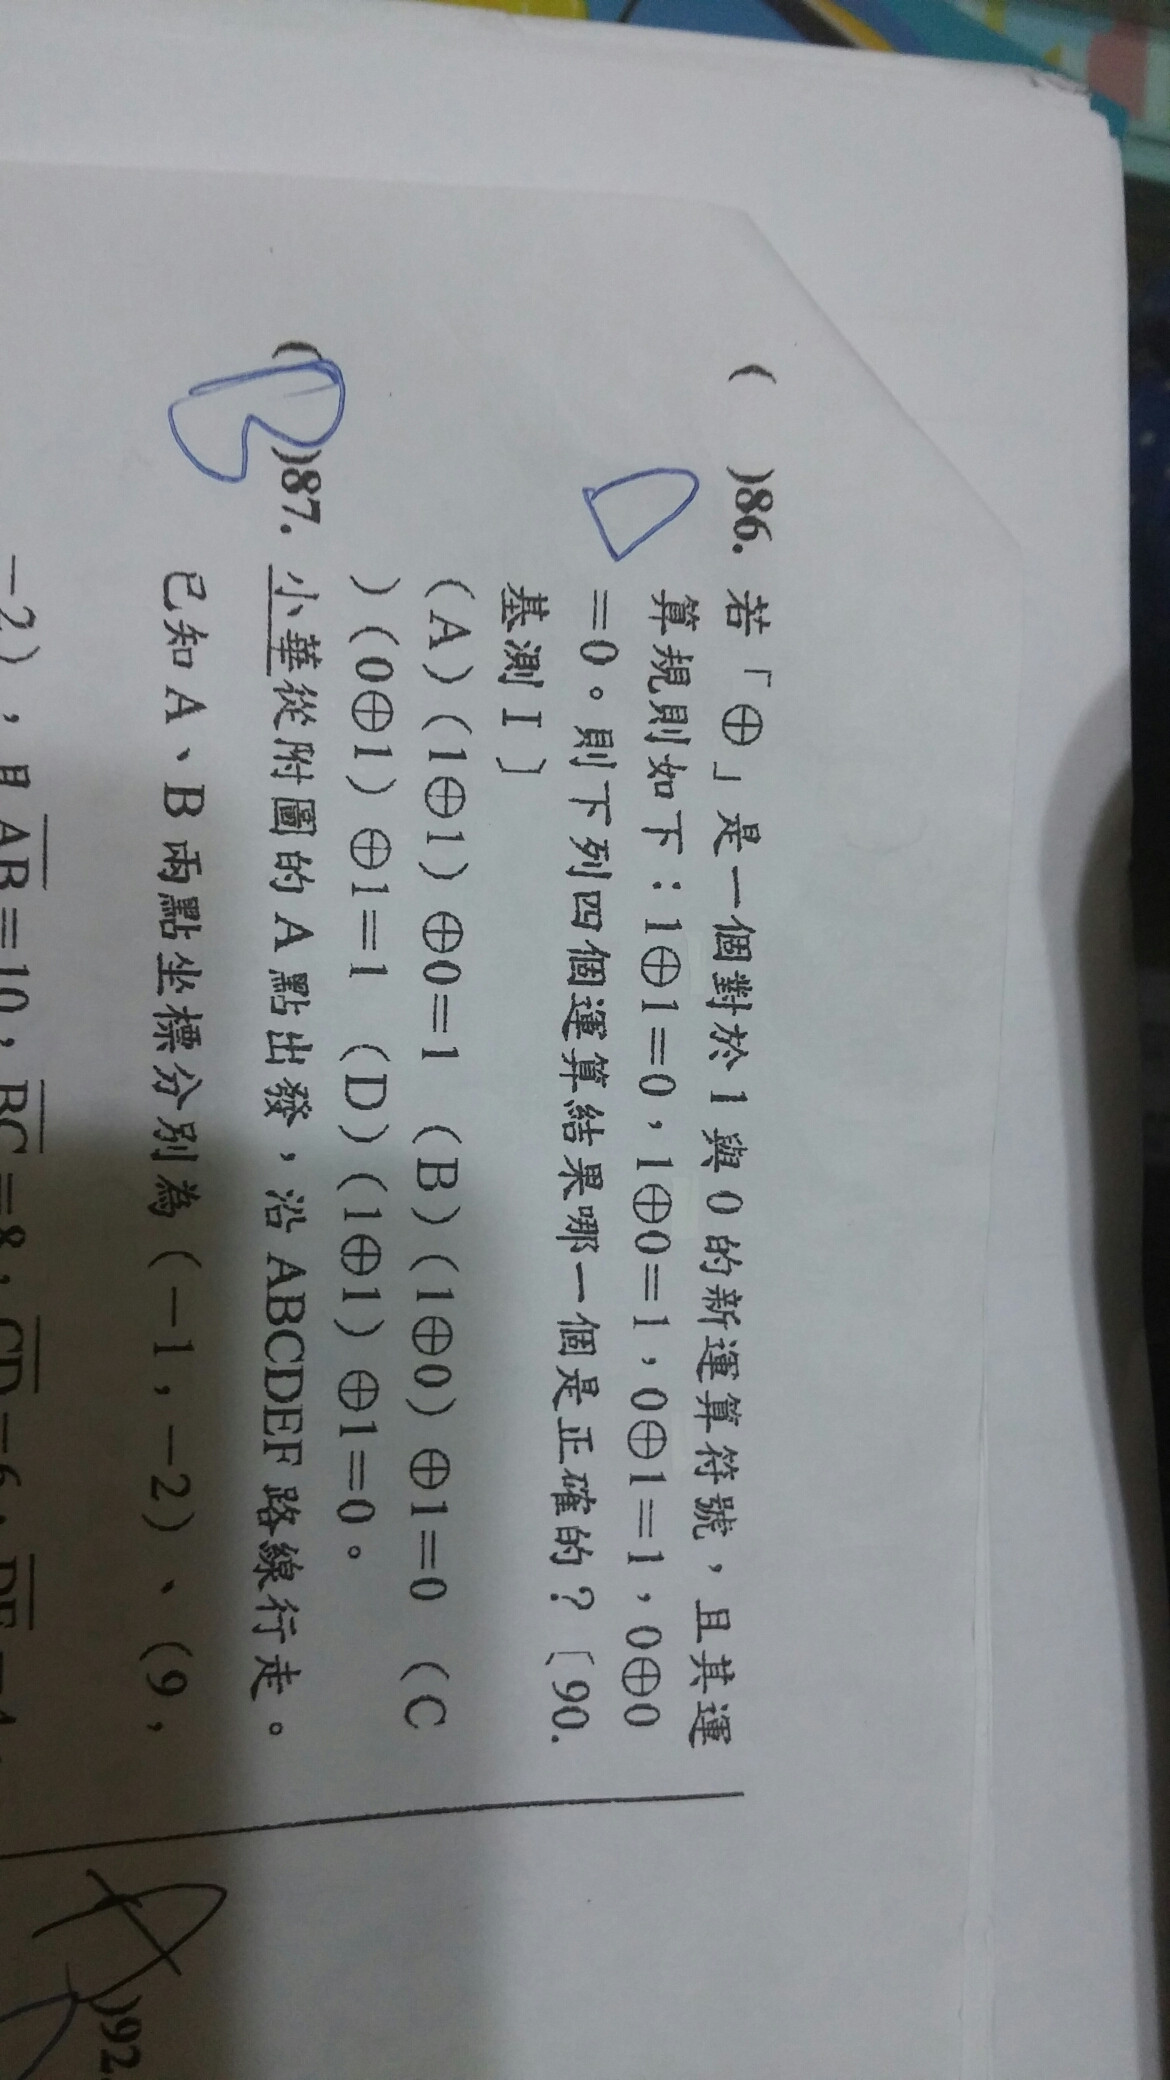 ( )86. 若「⊕」是一個對於 1 與 0 的新運算符號，且其運
算規則如下：1⊕1=0，1⊕0=1，0⊕1=1，0⊕0
=0。則下列四個運算結果哪一個是正確的？〔90.
基測 I〕
(A)(1⊕1)⊕0=1 (B)(1⊕0)⊕1=0 (C
)(0⊕1)⊕1=1 (D)(1⊕1)⊕1=0。
( B )87. 小華從附圖的 A 點出發，沿 ABCDEF 路線行走。
已知 A、B 兩點坐標分別為(-1，-2)、(9，
-2)，且AB=10，BC=8，CD=6，DE=4
D
A )92.